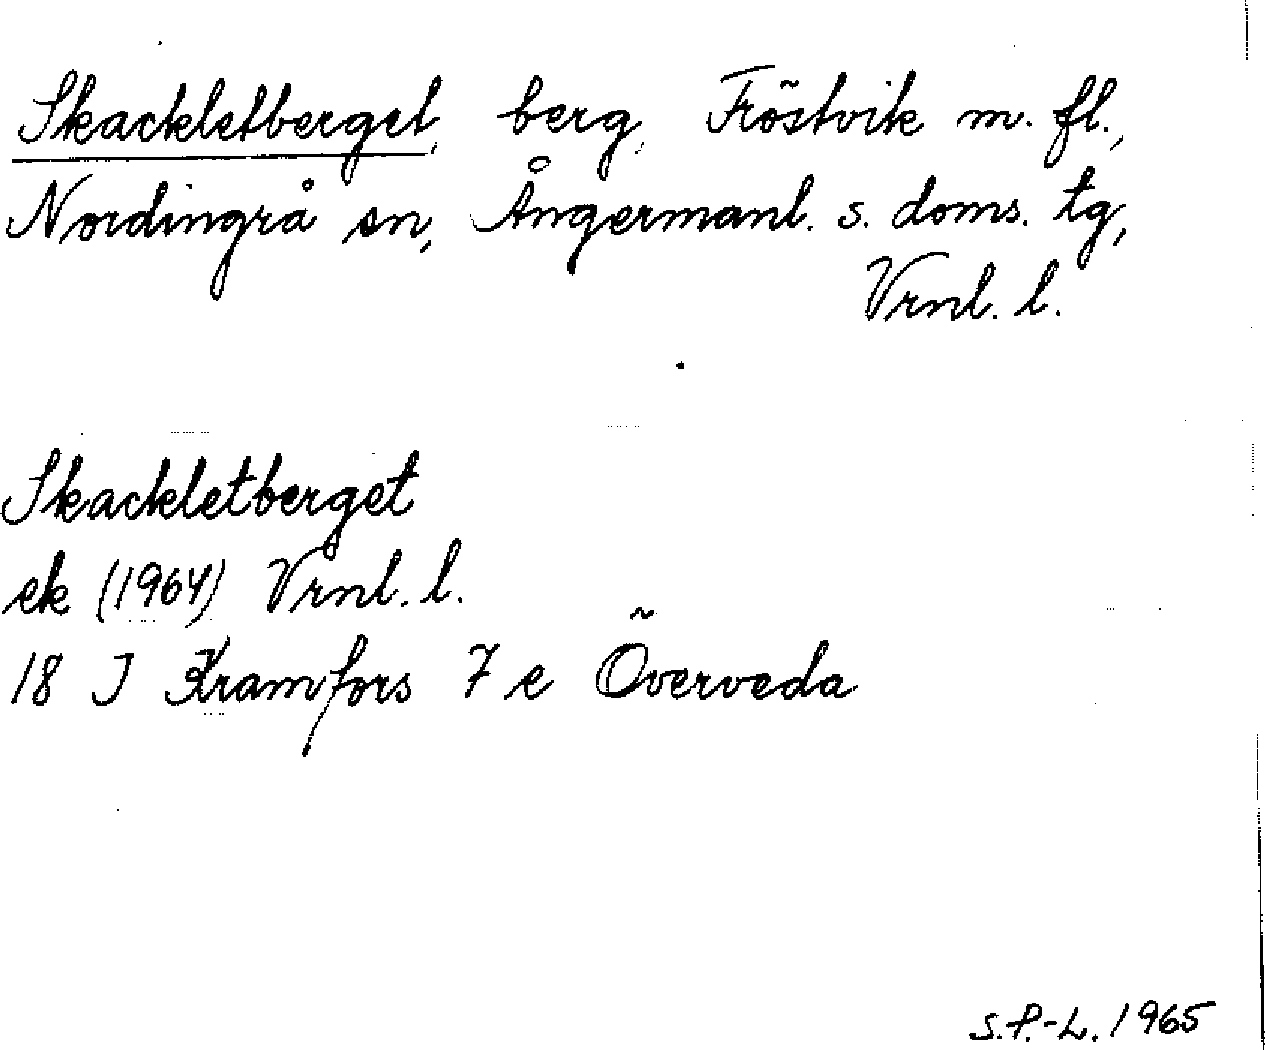 Skackletberget, berg, Fröstvik m. fl.,
Nordingrå sn, Ångermanl. s. doms. tg,
Vrnl. l.
Skackletberget
ek (1964) Vrnl. l.
18 J Kramfors 7 e Överveda
S.P.-L. 1965